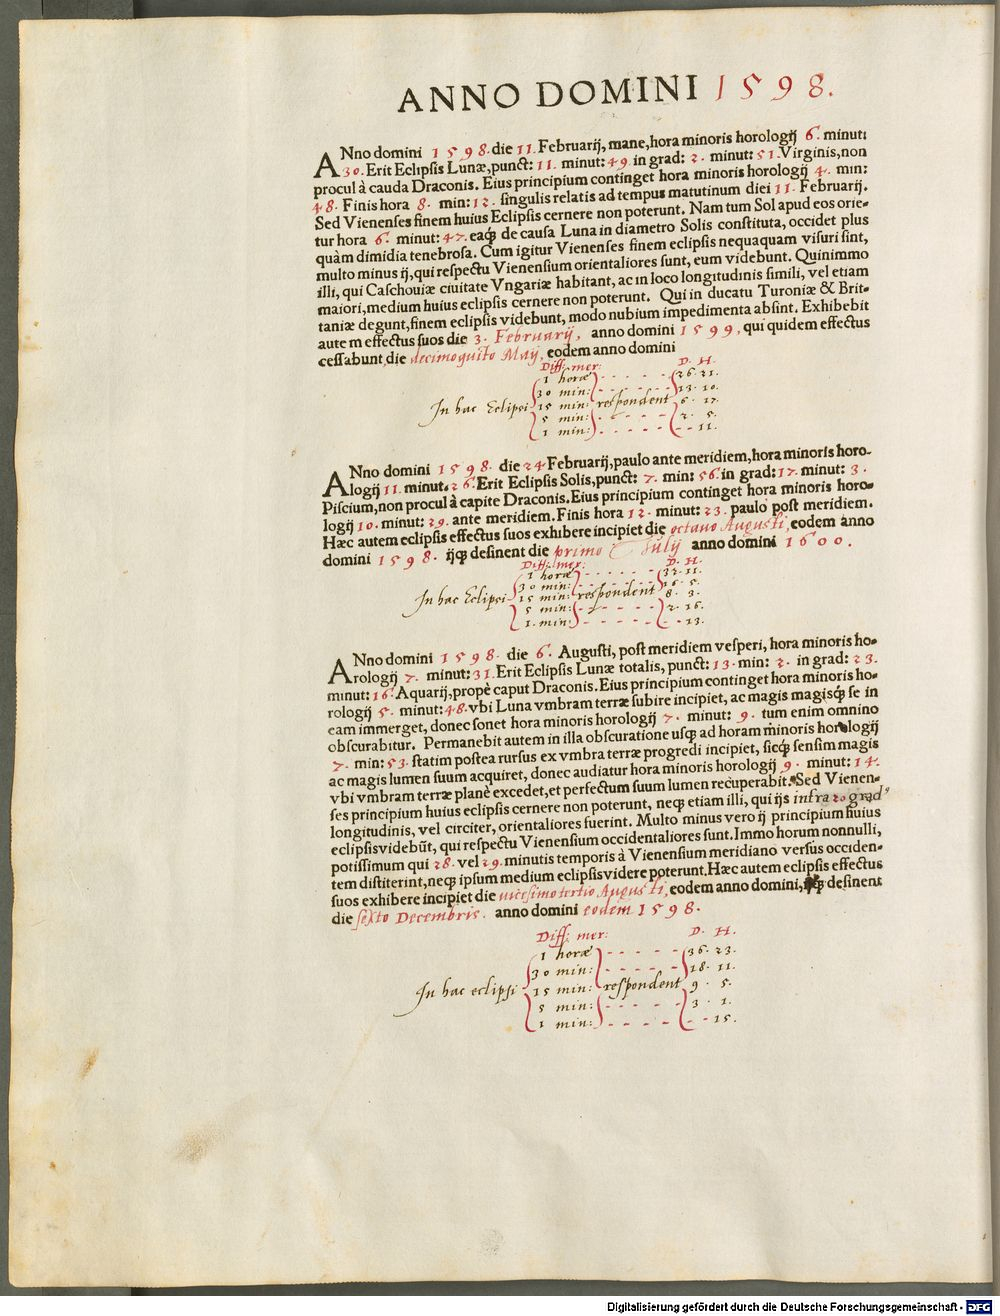 ANNO DOMINI 1598.
ANno domini 1598. die 11. Februarij, mane, hora minoris horologij 6. minut:
30. Erit Eclipsis Lunæ, punct: 11. minut: 49. in grad: 2. minut: 51. Virginis, non
procul à cauda Draconis. Eius principium continget hora minoris horologij 4. min:
48. Finis hora 8. min: 12. singulis relatis ad tempus matutinum diei 11. Februarij.
Sed Vienenses finem huius Eclipsis cernere non poterunt. Nam tum Sol apud eos orie-
tur hora 6. minut: 47. eaqꝫ de causa Luna in diametro Solis constituta, occidet plus
quàm dimidia tenebrosa. Cum igitur Vienenses finem eclipsis nequaquam visuri sint,
multo minus ij, qui respectu Vienensium orientaliores sunt, eum videbunt. Quinimmo
illi, qui Caschouiæ ciuitate Vngariæ habitant, ac in loco longitudinis simili, vel etiam
maiori, medium huius eclipsis cernere non poterunt. Qui in ducatu Turoniæ & Brit-
taniæ degunt, finem eclipsis videbunt, modo nubium impedimenta absint. Exhibebit
autem effectus suos die 3. Februarij, anno domini 1599, qui quidem effectus
cessabunt die decimoquito Maij, eodem anno domini
Diff: mer: D. H.
1 horæ - - - - - 26. 21.
30 min: - - - - - 13. 10.
In hac Eclipsi 15 min: respondent 6. 17.
5 min: - - - - - 2. 5.
1 min: - - - - - - - 11.
ANno domini 1598. die 24 Februarij, paulo ante meridiem, hora minoris horo-
logij 11. minut. 26. Erit Eclipsis Solis, punct: 7. min: 56. in grad: 17. minut: 3.
Piscium, non procul à capite Draconis. Eius principium continget hora minoris horo-
logij 10. minut: 29. ante meridiem. Finis hora 12. minut: 23. paulo post meridiem.
Hæc autem eclipsis effectus suos exhibere incipiet die octauo Augusti, eodem anno
domini 1598. ijqꝫ desinent die primo Iulij anno domini 1600.
Diff: mer: D. H.
1 horæ - - - - - 32. 11.
30 min: - - - - - 16. 5.
In hac Eclipsi 15 min: respondent 8. 3.
5 min: - - - - - 2. 16.
1. min: - - - - - - - 13.
ANno domini 1598. die 6. Augusti, post meridiem vesperi, hora minoris ho-
rologij 7. minut: 31. Erit Eclipsis Lunæ totalis, punct: 13. min: 2. in grad: 23.
minut: 16. Aquarij, propè caput Draconis. Eius principium continget hora minoris ho-
rologij 5. minut: 48. vbi Luna vmbram terræ subire incipiet, ac magis magisqꝫ se in
eam immerget, donec sonet hora minoris horologij 7. minut: 9. tum enim omnino
obscurabitur. Permanebit autem in illa obscuratione usqꝫ ad horam minoris horologij
7. min: 53. statim postea rursus ex vmbra terræ progredi incipiet, sicqꝫ sensim magis
ac magis lumen suum acquiret, donec audiatur hora minoris horologij 9. minut: 14.
vbi vmbram terræ planè excedet, et perfectum suum lumen recuperabit. Sed Vienen-
ses principium huius eclipsis cernere non poterunt, neqꝫ etiam illi, qui ijs infra 20 grad9
longitudinis, vel circiter, orientaliores fuerint. Multo minus vero ij principium huius
eclipsis videbūt, qui respectu Vienensium occidentaliores sunt. Immo horum nonnulli,
potissimum qui 28. vel 29. minutis temporis à Vienensium meridiano versus occiden-
tem distiterint, neqꝫ ipsum medium eclipsis videre poterunt. Hæc autem eclipsis effectus
suos exhibere incipiet die vicesimotertio Augusti, eodem anno domini, ijqꝫ desinent
die sexto Decembris. anno domini eodem 1598.
Diff: mer: D. H.
1 horæ - - - - 36. 23.
30 min: - - - - 18. 11.
In hac eclipsi 15 min: respondent 9. 5.
5 min: - - - - 3. 1.
1 min: - - - - - - 15.
Digitalisierung gefördert durch die Deutsche Forschungsgemeinschaft - DFG